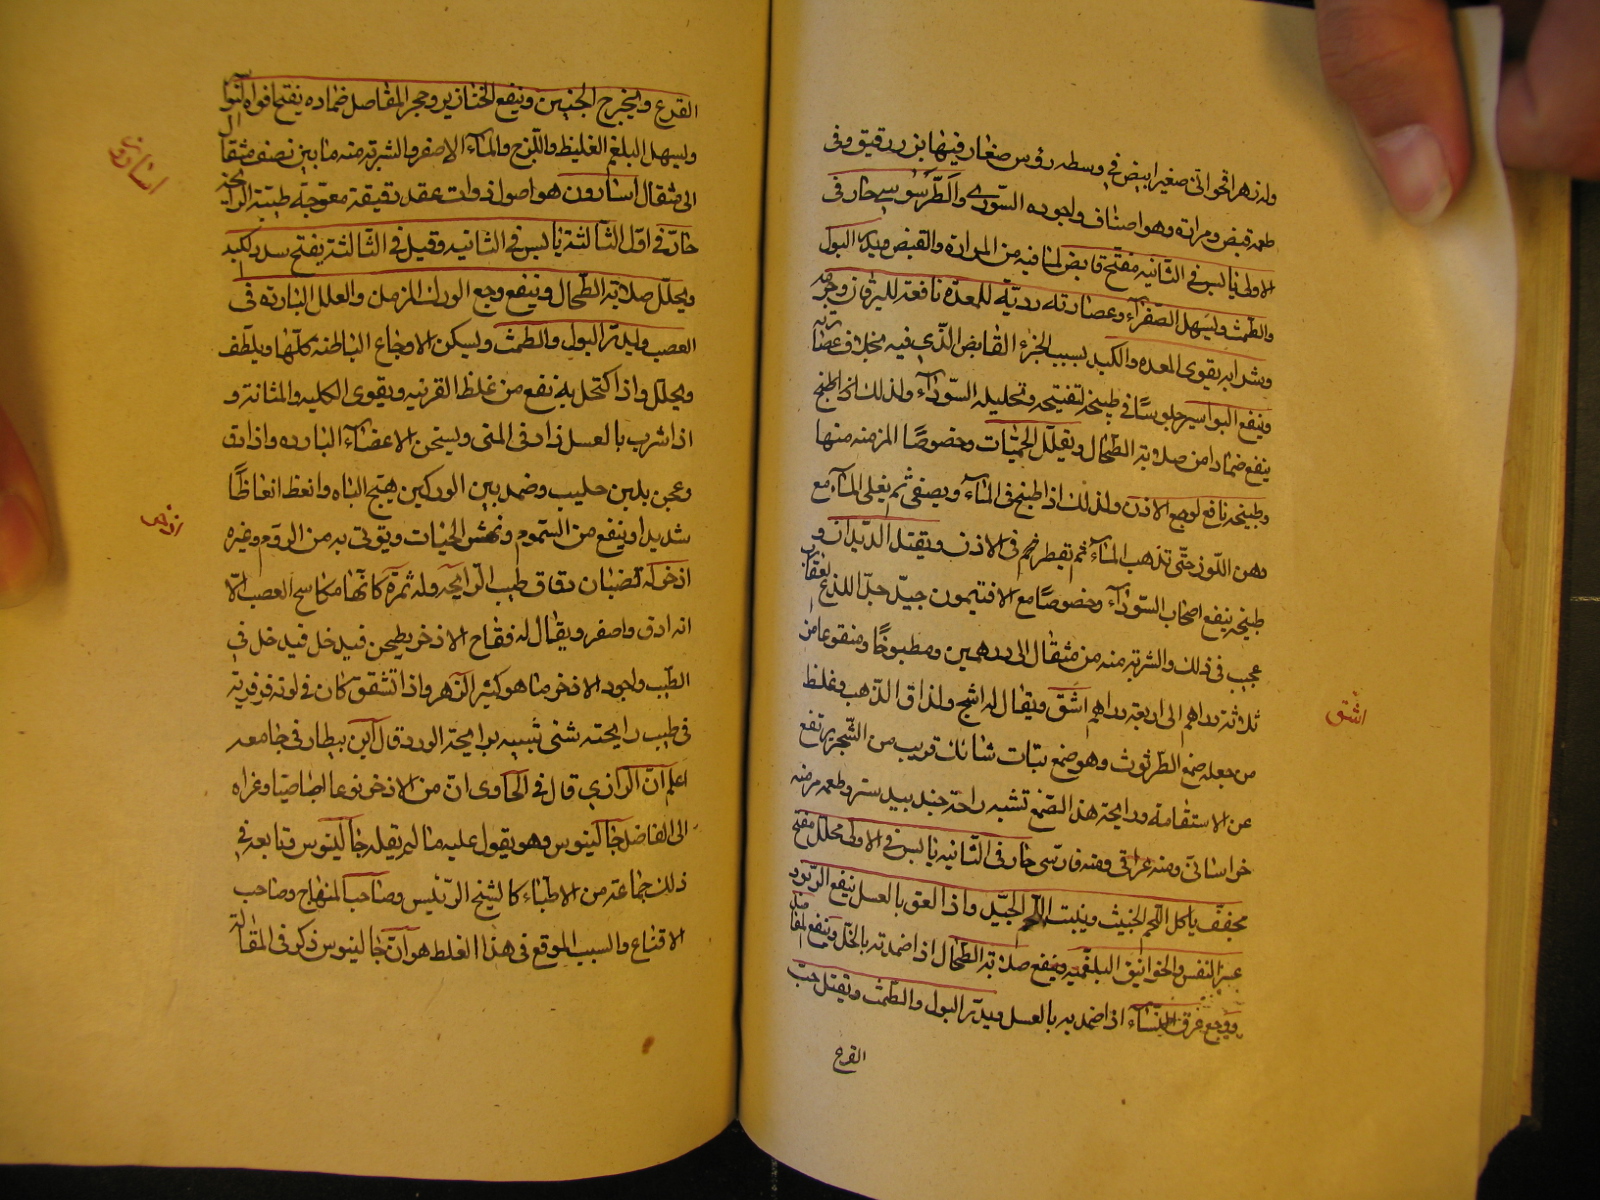 وله زهر اقحواني صغير ابيض في وسطه رؤس صغار فيها بزر دقيق وفي
طعمه قبض ومرارة وهو اصناف واجوده السوري والطرسوسي حار في
الاولى يابس في الثانيه مفتح قابض لما فيه من المرارة والقبض ويدر البول
والطمث ويسهل الصفرآء وعصارته رديّة للمعدة نافعة لليرقان وجرمه
وشرابه يقوى المعده والكبد بسبب الجزء القابض الذي فيه بخلاف عصارته
وينفع البواسير جلوسًا في طبيخه لتفتيحه وتحليله السودآء ولذلك اذا طبخ
ينفع ضمادا من صلابة الطحال ويقلل الحميات وخصوصًا المزمنه منها
وطبيخه نافع لوجع الاذن ولذلك اذا طبخ في المآء ويصفى ثم يغلى المآء مع
دهن اللوز حتّى تذهب المآء ثم يقطر في الاذن ويقتل الديدان و
طبيخه ينفع اصحاب السودآء وخصوصًا مع الافتيمون جيّد جدّا للذع العقارب
عجيب في ذلك والشربة منه من مثقال الى درهمين ومطبوخًا ومنقوعا من
ثلاثة دراهم الى اربعة دراهم اشق ويقال له اشج ولذاق الذهب وغلط
من جعله صمغ الطرثوث وهو صمغ نبات شائك قريب من الشجر يرتفع
عن الاستقامة ورايحة هذا الصمغ تشبه راحة جندبيدستر وطعمه مر منه
خراساني ومنه عراقي ومنه فارسي حار في الثانيه يابس في الاولى محلل مفتح
مجفف ياكل اللحم الخبيث وينبت اللحم الجيّد واذا لعق بالعسل ينفع الربو و
عسر النفس والخوانيق البلغميه وينفع صلابة الطحال اذا ضمدته بالخلّ وينفع المفاصل
ووجع عرق النسآء اذا ضمد به بالعسل ويدرّ البول والطمث ويقتل حب
القرع
اشق
القرع ويخرج الجنين وينفع الخنازير وحجر المفاصل ضماده يفتح افواه البواسير
ويسهل البلغم الغليظ واللزج والمآء الاصفر والشربة منه ما بين نصف مثقال
الى مثقال اسارون هو اصول ذوات عقد دقيقة معوجّة طيبّة الرايحه
حارّ في اوّل الثالثة يابس في الثانيه وقيل في الثالثة يفتح سدد الكبد
ويحلّل صلابة الطحال وينفع وجع الورك المزمن والعلل البارده في
العصب ويدرّ البول والطمث ويسكن الاوجاع الباطنة كلّها ويلطّف
ويحلل واذا اكتحل به نفع من غلظ القرنيه ويقوى الكليه والمثانة و
اذا شرب بالعسل زاد في المنى ويسخن الاعضآء البارده واذا دق
وعجن بلبن حليب وضمد بين الوركين هيّج الباه وانعظ انعاظًا
شديدا وينفع من السموم ونهش الحيات ويوتى به من الروم وغيره
اذخر له قضبان دقاق طيب الرايحه وله ثمرة كانّها مكاسح العصب الّا
انه ادق واصغر ويقال له فقاح الاذخر يطحن فيدخل فيدخل في
الطيب واجود الاذخر ما هو كثير الزهر واذا تشقق كان في لونه فرفرية
في طيب رايحته شئ شبيه برايحة الورد قال ابن بيطار في جامعه
اعلم انّ الرازي قال في الحاوى انّ من الاذخر نوعا اجاميّا وعزاه
الى الفاضل جالينوس وهو يقول عليه ما لم يقله جالينوس وتابعه في
ذلك جماعة من الاطباء كالشيخ الرئيس وصاحب المنهاج وصاحب
الاقناع والسبب الموقع في هذا الغلط هو انّ جالينوس ذكر في المقالة
اسارون
اذخر